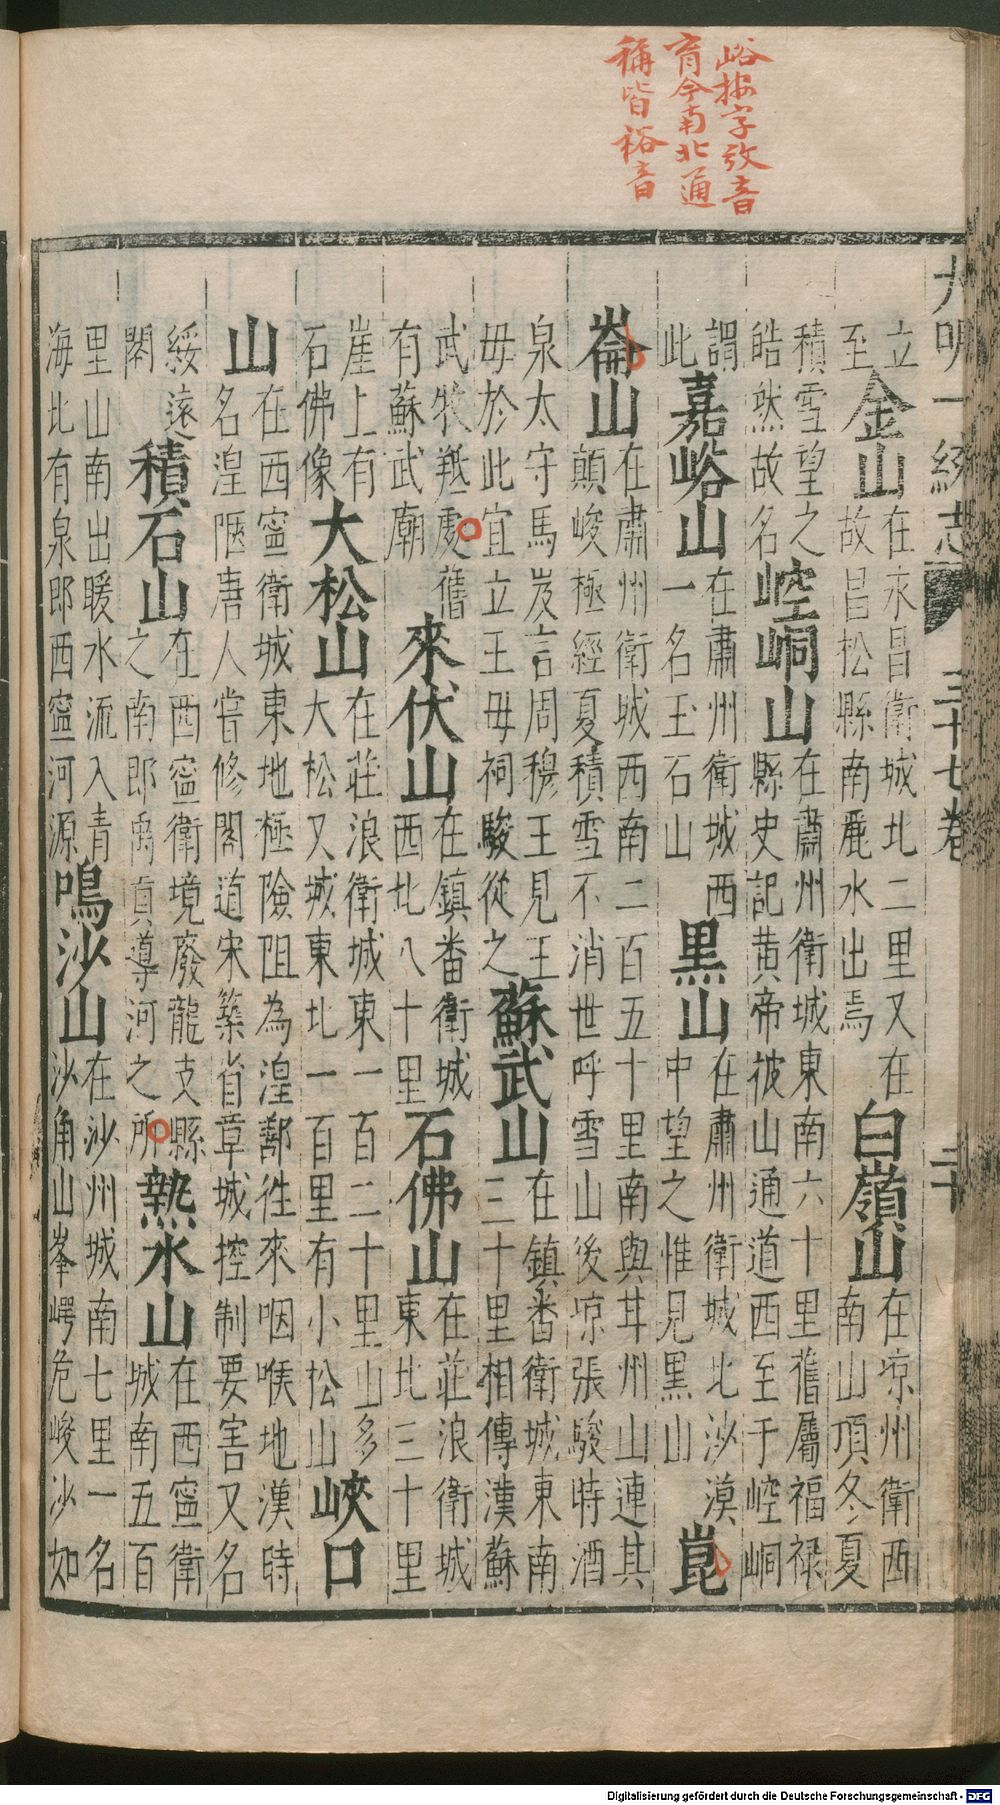 峪按字攷音
育今南北通
稱皆裕音
大明一統志 三十七卷 二十
立至金山在永昌衛城北二里又在故昌松縣南麗水出焉白嶺山在涼州衛西南山頂冬夏
積雪望之皓然故名崆峒山在肅州衛城東南六十里舊屬福祿縣史記黃帝披山通道西至于崆峒
謂此嘉峪山在肅州衛城西一名玉石山黑山在肅州衛城北沙漠中望之惟見黑山崑
崙山在肅州衛城西南二百五十里南與甘州山連其顛峻極經夏積雪不消世呼雪山後涼張駿時酒
泉太守馬岌言周穆王見王母於此宜立王母祠駿從之蘇武山在鎮番衛城東南三十里相傳漢蘇
武牧羝處舊有蘇武廟來伏山在鎮番衛城西北八十里石佛山在莊浪衛城東北三十里
崖上有石佛像大松山在莊浪衛城東一百二十里山多大松又城東北一百里有小松山峽口
山在西寧衛城東地極險阻為湟鄯往來咽喉地漢時名湟陿唐人嘗修閣道宋築省章城控制要害又名
綏遠閣積石山在西寧衛境廢龍支縣之南即禹貢導河之所熱水山在西寧衛城南五百
里山南出暖水流入青海北有泉即西寧河源鳴沙山在沙州城南七里一名沙角山峯崿危峻沙如
Digitalisierung gefördert durch die Deutsche Forschungsgemeinschaft - DFG